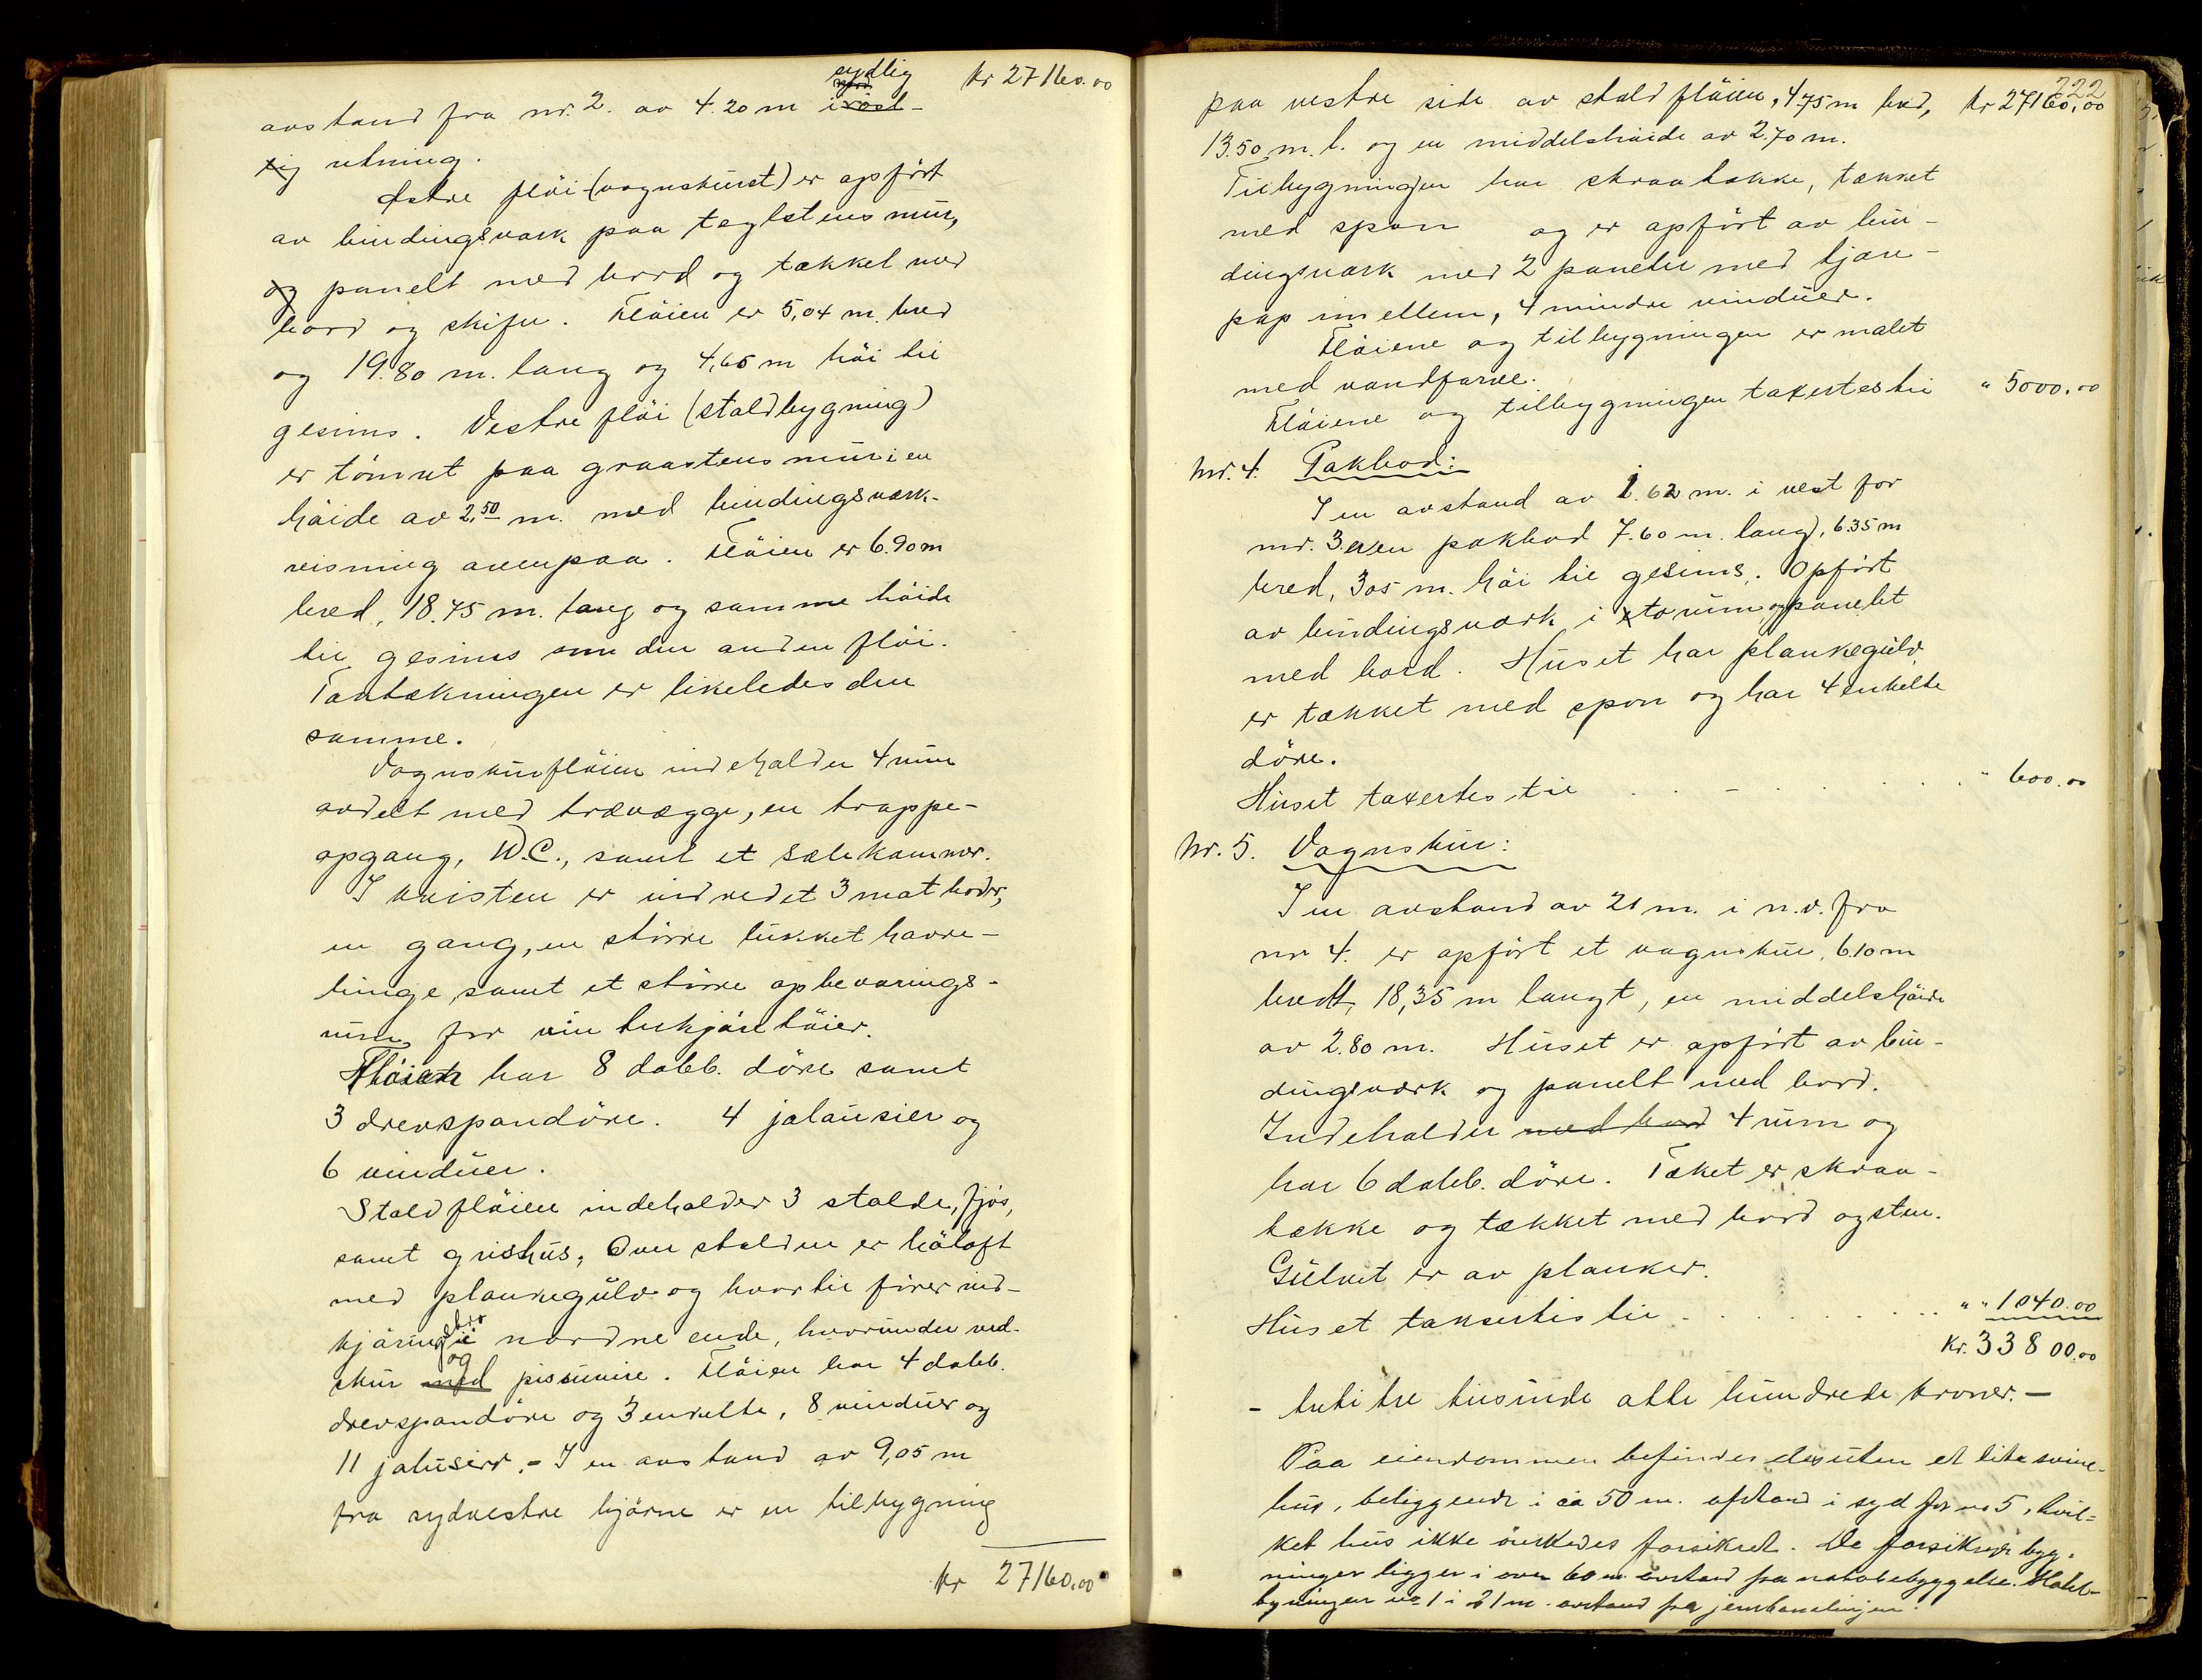 sydlig kr 27160.00
avstand fra nr. 2. av 4.20 m i röst-
lig retning.
Østre flöi (vognskuret) er opfört
av bindingsverk paa teglstensmur,
og panelt med bord og tækket med
bord og skifer. Flöien er 5,04 m. bred
og 19.80 m. lang og 4,65 m höi til
gesims. Vestre flöi (staldbygning)
er tömret paa graastens mur i en
höide av 2,50 m. med bindingsverk-
reisning ovenpaa. Flöien er 6.90 m
bred, 18.75 m. lang og samme höide
til gesims som den anden flöi.
Taktækningen er likeledes den
samme.
Vognskurflöien indeholder 4 rum
avdelt med trævægge, en trappe-
opgang, W.C., samt et selekammer.
I kvisten er indredet 3 matboder,
en gang, en större lukket havre-
binge, samt et större opbevarings-
rum for vinterkjöretöier.
Flöien har 8 dobb. döre samt
3 drevspandöre. 4 jalausier og
6 vinduer.
Staldflöien indeholder 3 stalde, fjös,
samt grishus, Over stalden er höloft
med plankegulv og hvortil förer ind-
kjöringsbro i nordre ende, hvorunder ved-
skur med og pissuire. Flöien har 4 dobb.
drevspandöre og 3 enkelte, 8 vinduer og
11 jalusier. - I en avstand av 9,05 m
fra sydvestre hjörne er en tilbygning
kr 27160.00
222
paa vestre side av staldflöien, 4.75 m bred, kr 27160,00
13.50 m. l. og en middelshöide av 2.70 m.
Tilbygningen har skraatække, tækket
med spon og er opfört av bin-
dingsverk med 2 paneler med tjære-
pap imellem, 4 mindre vinduer.
Flöiene og tilbygningen er malet
med vandfarve.
Flöiene og tilbygningen takertes til " 5000.00
Nr. 4. Pakbod:
I en avstand av 1.62 m. i vest for
nr. 3 er en pakbod 7.60 m. lang, 6.35 m
bred, 3.05 m. höi til gesims. Opfört
av bindingsverk i to rum og panelet
med bord. Huset har plankegulv,
er tækket med spon og har 4 enkelte
döre.
Huset takertes til " 600.00
Nr. 5. Vognskur:
I en avstand av 21 m. i n.v. fra
nr 4. er opfört et vognskur, 6.10 m
bredt, 18,35 m langt, en middelshöide
av 2.80 m. Huset er opfört av bin-
dingsverk og panelt med bord.
Indeholder med bord 4 rum og
har 6 dobb. döre. Taket er skraa-
tække og tækket med bord og sten.
Gulvet er av planker.
Huset taksertes til " " 1040.00
Kr. 33800.00
- tretitre tusinde otte hundrede kroner. -
Paa eiendommen befindes desuten et lite svine-
hus, beliggende i ca 50 m. afstand i syd for no 5, hvil-
ket hus ikke önskedes forsikret. De forsikrede byg-
ninger ligger i over 60 m avstand fra nabobebyggelse. Hoved-
bygningen no 1 i 21 m. avstand fra jernbanelinjen.